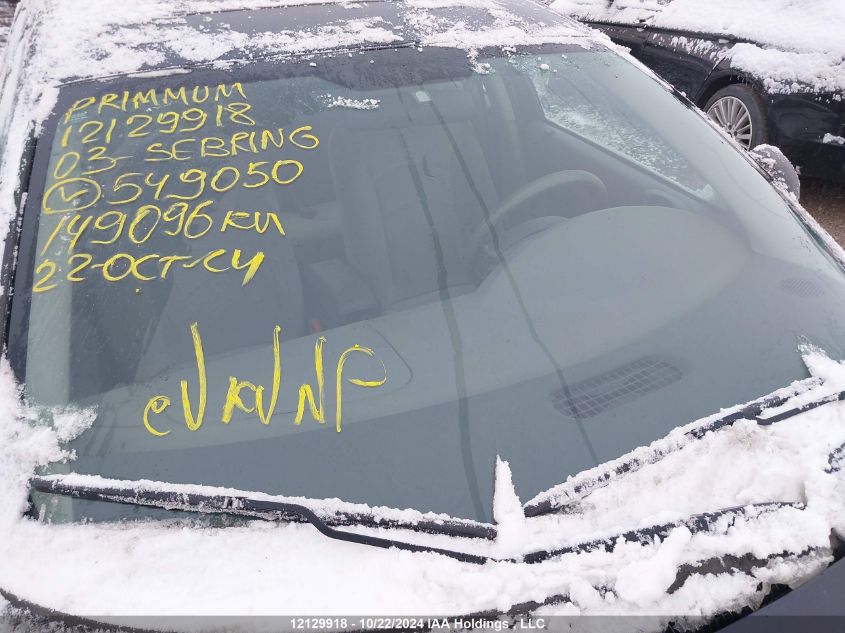 PRIMMUM
12129918
03-SEBRING
V 549050
149096KM
22-OCT-CY
eV KV NP
12129918 - 10/22/2024 IAA Holdings , LLC